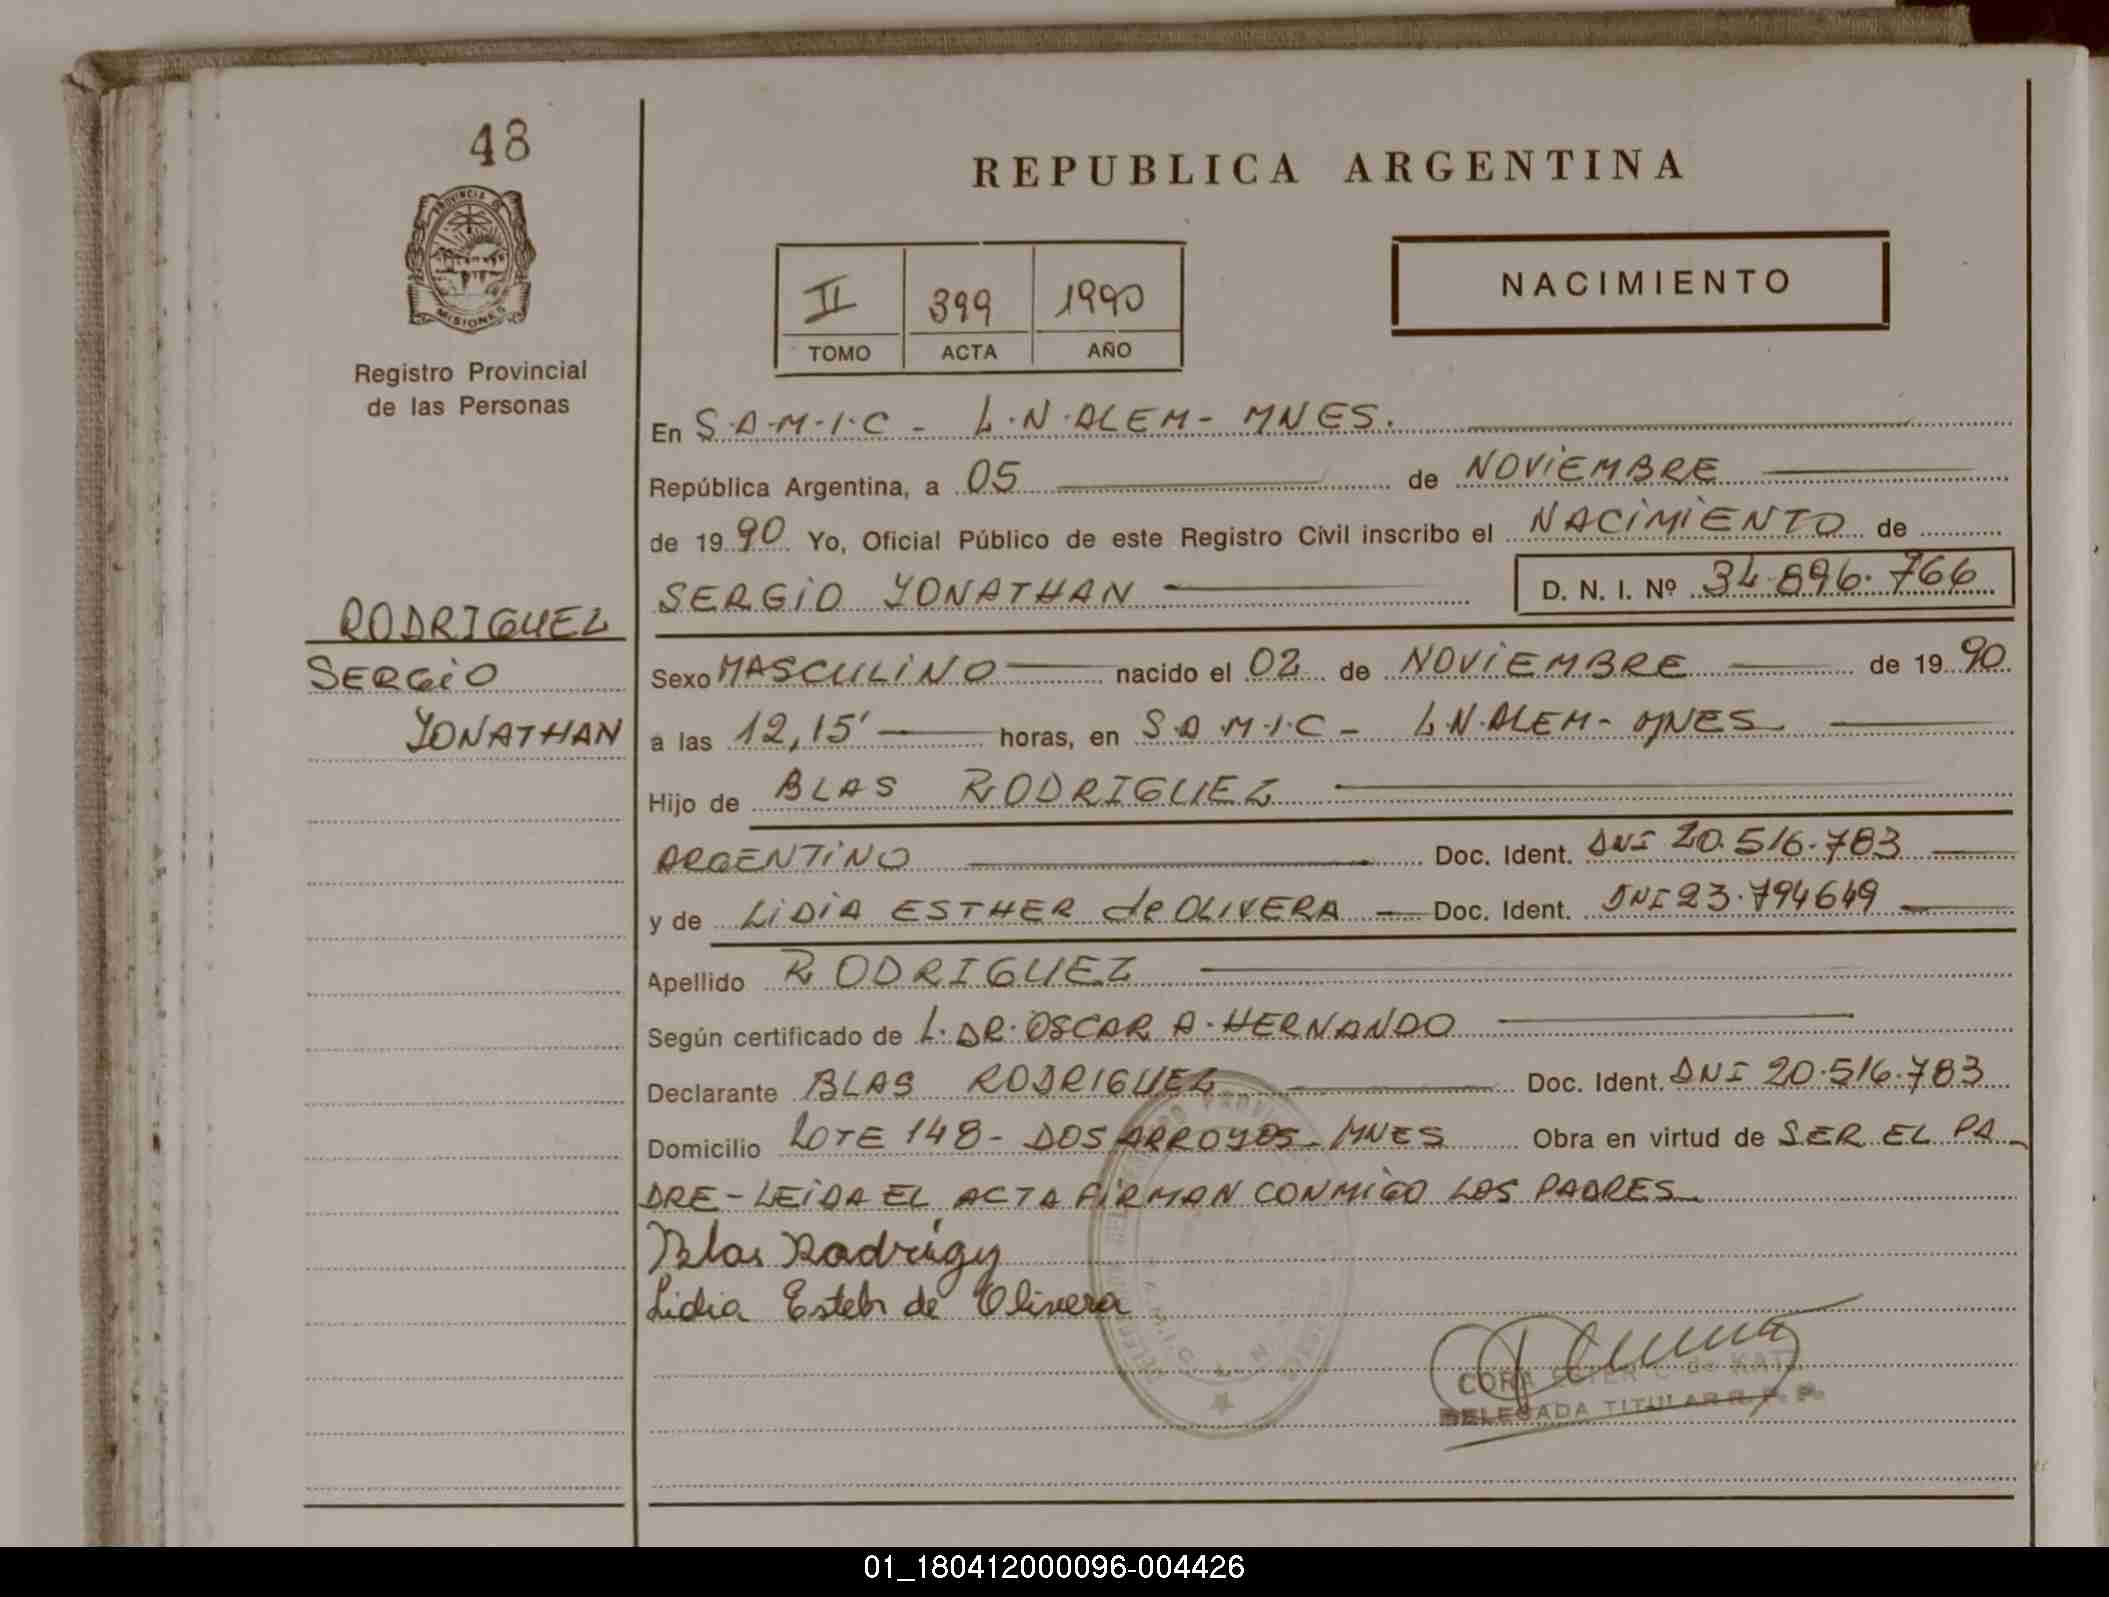 48
REPUBLICA ARGENTINA
PROVINCIA DE
MISIONES
Registro Provincial
de las Personas
II 399 1990
TOMO ACTA AÑO
NACIMIENTO
En S.A.M.I.C - L.N.ALEM - MNES.
República Argentina, a 05 de NOVIEMBRE
de 1990 Yo, Oficial Público de este Registro Civil inscribo el NACIMIENTO de
SERGIO YONATHAN D. N. I. Nº 34.896.766
RODRIGUEZ
SERGIO
YONATHAN
Sexo MASCULINO nacido el 02 de NOVIEMBRE de 1990
a las 12,15' horas, en S.A.M.I.C - L.N.ALEM - MNES
Hijo de BLAS RODRIGUEZ
ARGENTINO Doc. Ident. DNI 20.516.783
y de LIDIA ESTHER de OLIVERA Doc. Ident. DNI 23.794649
Apellido RODRIGUEZ
Según certificado de L. DR. OSCAR A. HERNANDO
Declarante BLAS RODRIGUEZ Doc. Ident. DNI 20.516.783
Domicilio LOTE 148 - DOS ARROYOS - MNES Obra en virtud de SER EL PA-
DRE - LEIDA EL ACTA FIRMAN CONMIGO LOS PADRES
Blas Rodrigz
Lidia Esteh de Olivera
CORA ESTER C. de KATZ
DELEGADA TITULAR R. P. P.
01_180412000096-004426